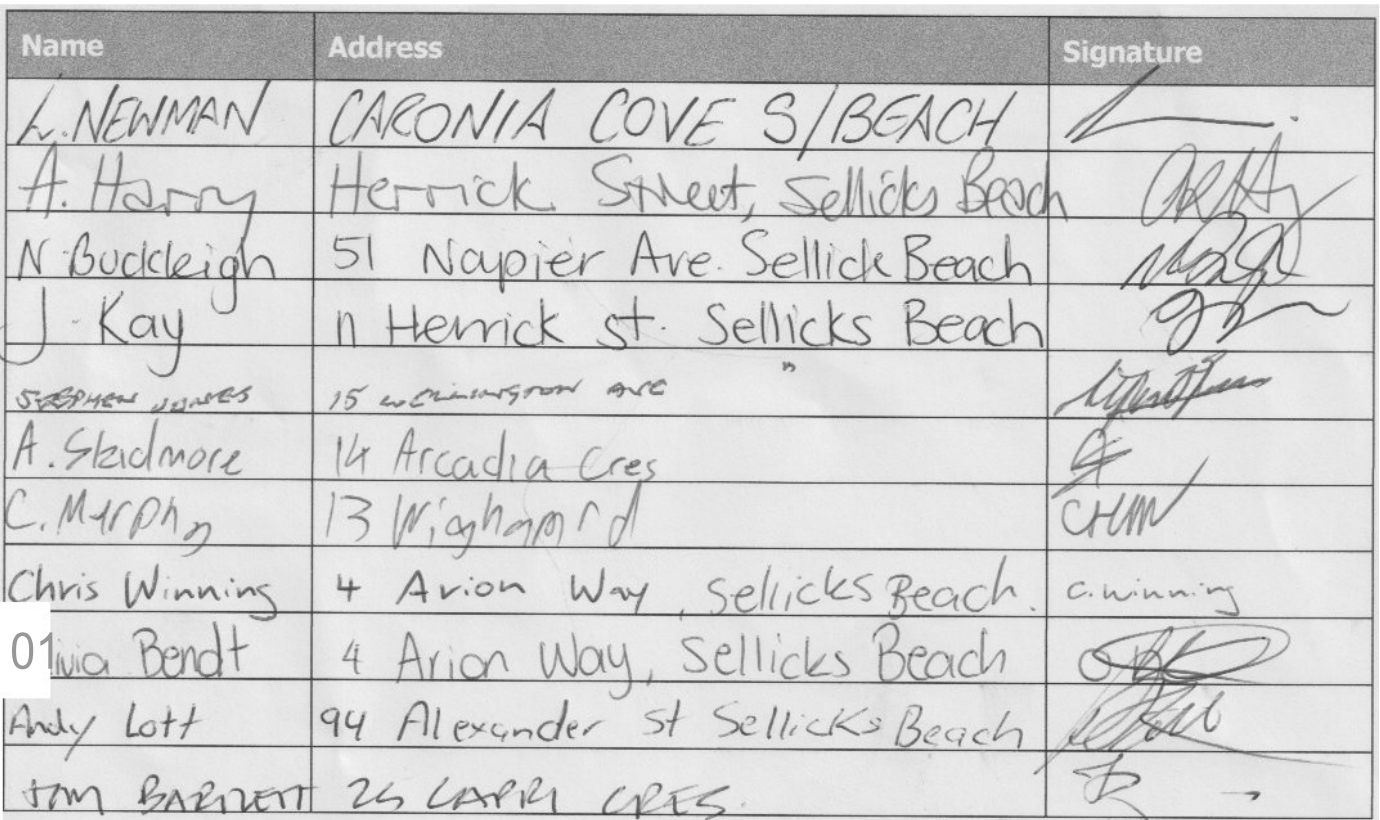 Name Address Signature
L. NEWMAN CARONIA COVE S/BEACH
A. Harry Herrick Street, Sellicks Beach
N Buckleigh 51 Napier Ave. Sellick Beach
J. Kay 11 Herrick st. Sellicks Beach
STEPHEN JONES 15 WELLINGTON AVE "
A. Skidmore 14 Arcadia Cres
C. Murphy 13 CHM
Chris Winning 4 Arion Way, Sellicks Beach. C. Winning
01 ivia Bendt 4 Arion Way, Sellicks Beach
Andy Lott 94 Alexander St Sellicks Beach
TOM BARTLETT 25 CAPRI CRES.